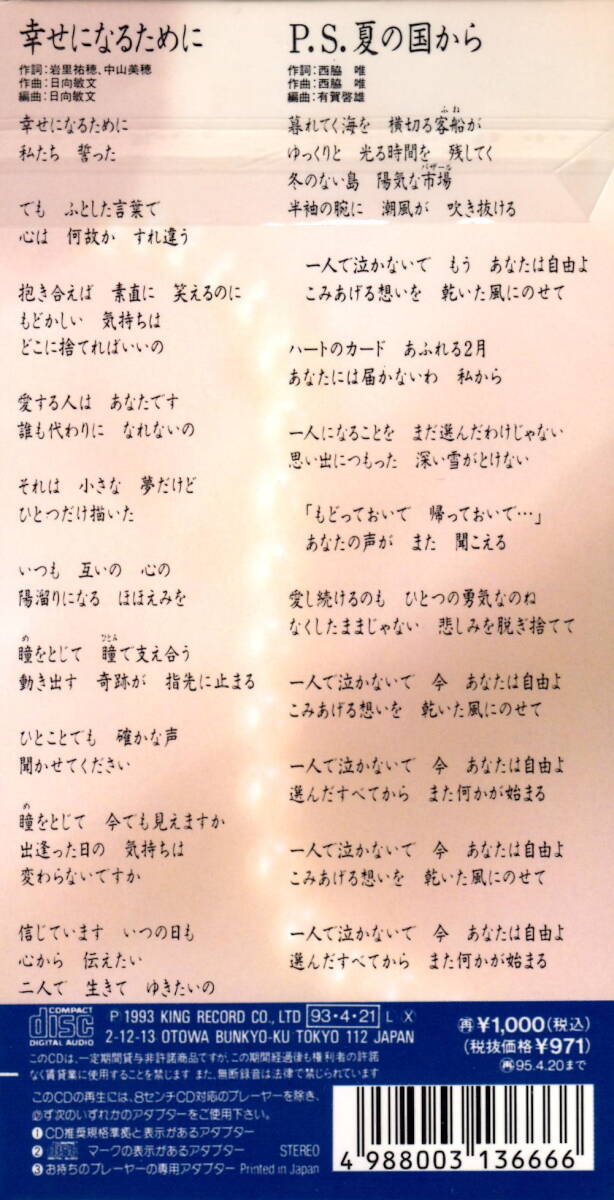 幸せになるために
作詞:岩里祐穂、中山美穂
作曲:日向敏文
編曲:日向敏文
幸せになるために
私たち 誓った
でも ふとした言葉で
心は 何故か すれ違う
抱き合えば 素直に 笑えるのに
もどかしい 気持ちは
どこに捨てればいいの
愛する人は あなたです
誰も代わりに なれないの
それは 小さな 夢だけど
ひとつだけ描いた
いつも 互いの 心の
陽溜りになる ほほえみを
め ひとみ
瞳をとじて 瞳で支え合う
動き出す 奇跡が 指先に止まる
ひとことでも 確かな声
聞かせてください
め
瞳をとじて 今でも見えますか
出逢った日の 気持ちは
変わらないですか
信じています いつの日も
心から 伝えたい
二人で 生きて ゆきたいの
P.S.夏の国から
作詞:西脇 唯
作曲:西脇 唯
編曲:有賀啓雄
ふね
暮れてく海を 横切る客船が
ゆっくりと 光る時間を 残してく
バザール
冬のない島 陽気な市場
半袖の腕に 潮風が 吹き抜ける
一人で泣かないで もう あなたは自由よ
こみあげる想いを 乾いた風にのせて
ハートのカード あふれる2月
あなたには届かないわ 私から
一人になることを まだ選んだわけじゃない
思い出につもった 深い雪がとけない
「もどっておいで 帰っておいで…」
あなたの声が また 聞こえる
愛し続けるのも ひとつの勇気なのね
なくしたままじゃない 悲しみを脱ぎ捨てて
一人で泣かないで 今 あなたは自由よ
こみあげる想いを 乾いた風にのせて
一人で泣かないで 今 あなたは自由よ
選んだすべてから また何かが始まる
一人で泣かないで 今 あなたは自由よ
こみあげる想いを 乾いた風にのせて
一人で泣かないで 今 あなたは自由よ
選んだすべてから また何かが始まる
COMPACT
disc
DIGITAL AUDIO
Ⓟ1993 KING RECORD CO., LTD 93・4・21 L Ⓧ
2-12-13 OTOWA BUNKYO-KU TOKYO 112 JAPAN
このCDは、一定期間貸与非許諾商品ですが、この期間経過後も権利者の許諾
なく賃貸業に使用することを禁じます また、無断録音は法律で禁じられています
このCDの再生には、8センチCD対応のプレーヤーを除き、
必ず次のいずれかのアダプターをご使用下さい。
❶CD推奨規格準拠と表示があるアダプター
❷ マークの表示があるアダプター STEREO
❸お持ちのプレーヤーの専用アダプター Printed in Japan
再¥1,000(税込)
(税抜価格¥971)
再95.4.20まで
4 988003 136666